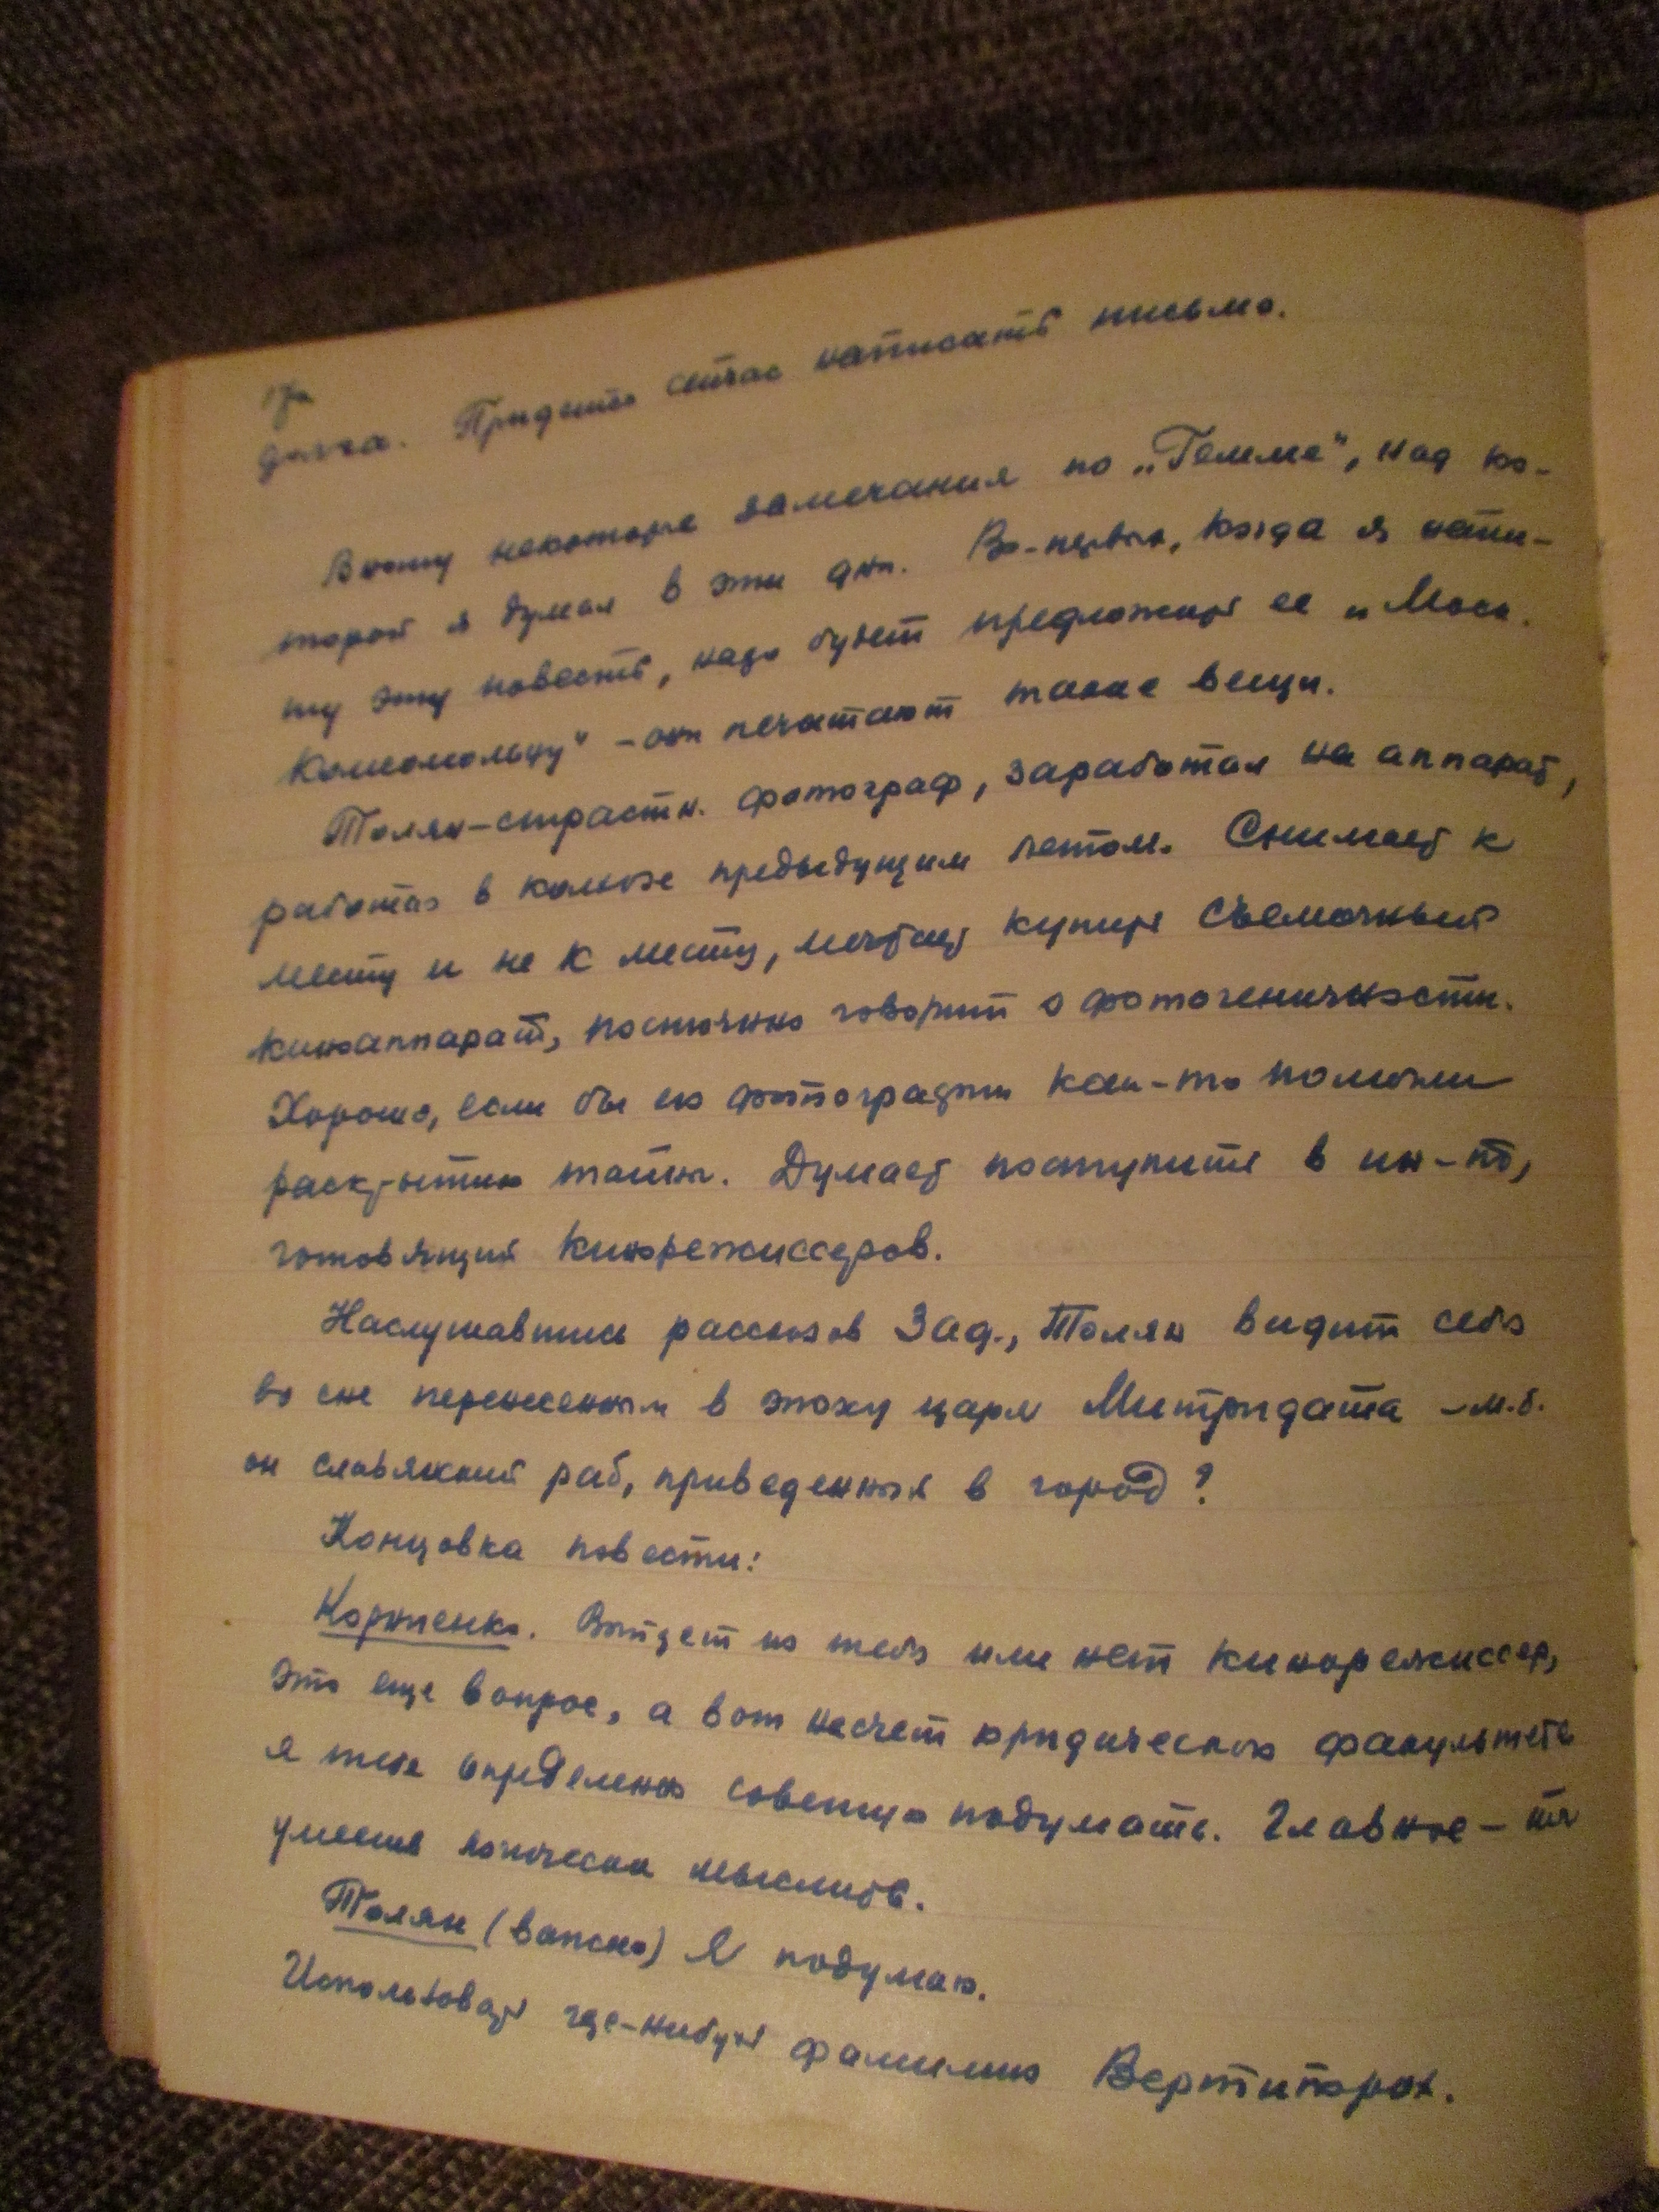 долга. Придется сейчас написать письмо.
Вношу некоторые замечания по „Гемме", над ко-
торой я думал в эти дни. Во-первых, когда я напи-
шу эту повесть, надо будет предложить ее „Моск.
Комсомольцу" – они печатают такие вещи.
Толян – страстн. фотограф, заработал на аппарат,
работая в колхозе предыдущим летом. Снимает к
месту и не к месту, мечтает купить съемочный
киноаппарат, постоянно говорит о фотогеничности.
Хорошо, если бы его фотографии как-то помогли
раскрытию тайны. Думает поступить в ин-т,
готовящий кинорежиссеров.
Наслушавшись рассказов Зад., Толян видит себя
во сне перенесенным в эпоху царя Митридата – м.б.
он славянский раб, приведенный в город?
Концовка повести:
Корниенко. Выйдет из тебя или нет кинорежиссер,
это еще вопрос, а вот насчет юридического факультета
я тебе определенно советую подумать. Главное – ты
умеешь логически мыслить.
Толян (важно) Я подумаю.
Использовать где-нибудь фамилию Вертипорох.